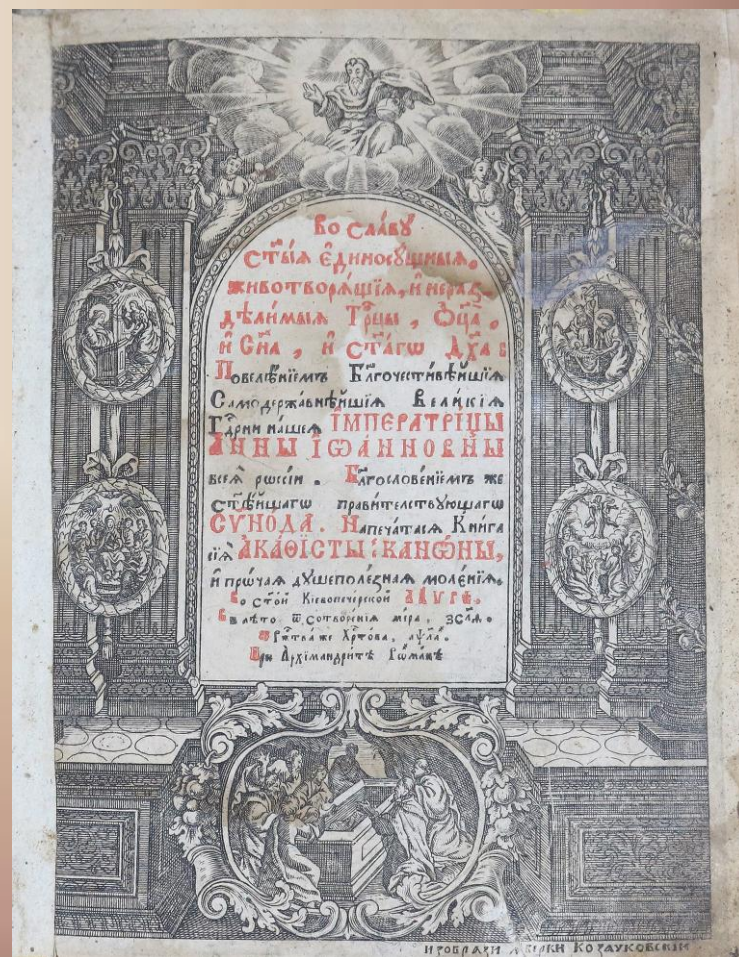 Во славу
Ст҃ы́ѧ є҆диносꙋ́щныѧ,
животворѧ́щїѧ, и҆ нераз̾
дѣли́мыѧ Трⷪ҇цы, Ѻ҆ц҃а̀,
и҆ Сн҃а, и҆ Ст҃а́гѡ Дх҃а :
Повелѣ́нїемъ Бл҃гочести́вѣйшїѧ
Самодержа́внѣйшїѧ Вели́кїѧ
Гдⷭ҇рни нашеѧ ІМПЕРАТРІЦЫ
АННЫ ІѠАННОВНЫ
всеѧ̀ рѡссі́и. Бл҃гослове́нїемъ же
ст҃ѣ́йшагѡ прави́телствꙋющагѡ
СѴНОДА. Напеча́тасѧ Кни́га
сїѧ̀ АКАѲІСТЫ : КАНѠНЫ,
и҆ прѡ́чаѧ дꙋшеполе́знаѧ моле́нїѧ,
Во ст҃о́й Кіевопече́рской ЛАѴРѢ,
В лѣ́то ѿ сотворе́нїѧ мі́ра, ҂зсл҃ѳ.
Ѿ Ржⷭ҇тва́ же Хрⷭ҇то́ва, ҂аѱл҃а.
При А҆рхїмандри́тѣ Рѡма́нѣ
изобрази Аверки Козачковскїи